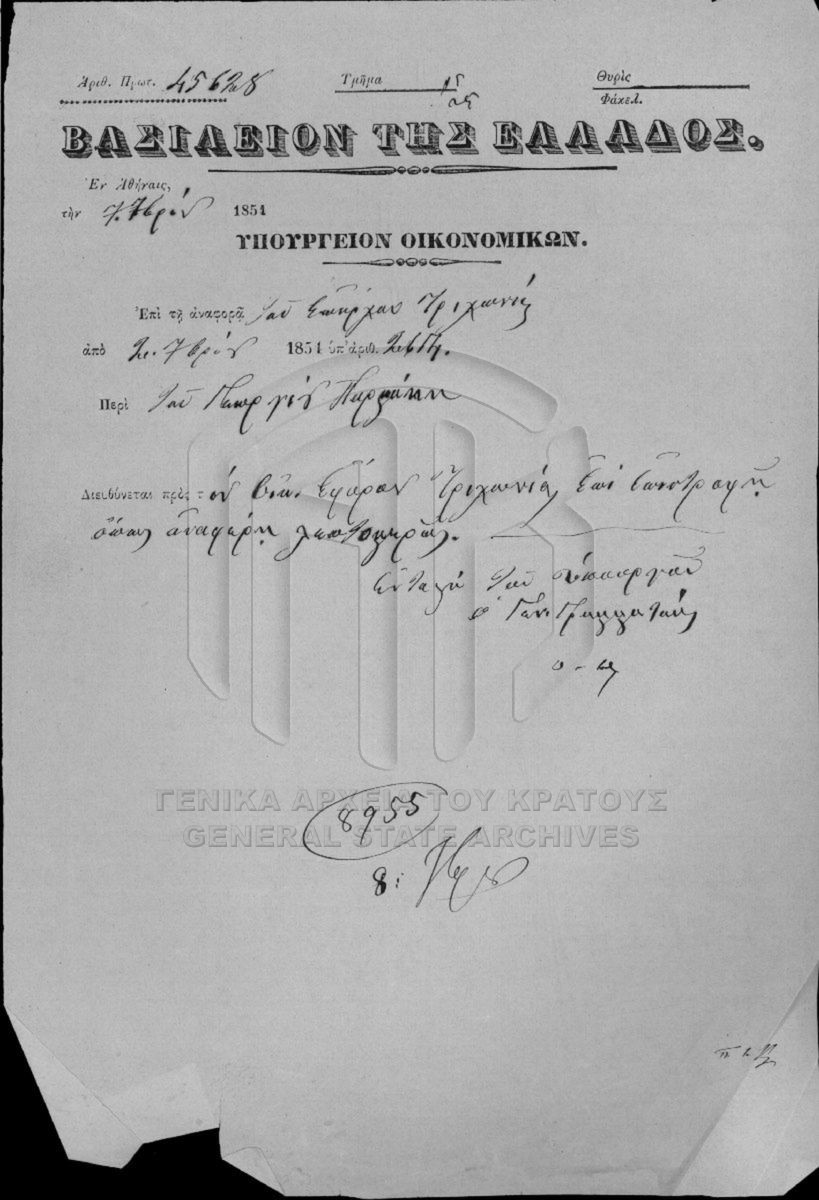 Ἀριθ. Πρωτ. 45628 Τμῆμα Θυρὶς
Φάκελ.
ΒΑΣΙΛΕΙΟΝ ΤΗΣ ΕΛΛΑΔΟΣ.
Ἐν Ἀθήναις,
τὴν 7. 7βρίου 1851
ΥΠΟΥΡΓΕΙΟΝ ΟΙΚΟΝΟΜΙΚΩΝ.
Ἐπὶ τῇ ἀναφορᾷ τοῦ Ἐπάρχου Τριχωνίας
ἀπὸ 2. 7βρίου 1851 ὑπ' ἀριθ.
Περὶ τοῦ Γεωργίου
Διευθύνεται πρὸς τὸν Οἰκ. Ἔφορον Τριχωνίας ἐπὶ ἐπιστροφῇ
ὅπως ἀναφέρῃ λεπτομερῶς.
Ἐντολῇ τοῦ Ὑπουργοῦ
ὁ Γεν. Γραμματεὺς
ΓΕΝΙΚΑ ΑΡΧΕΙΑ ΤΟΥ ΚΡΑΤΟΥΣ
GENERAL STATE ARCHIVES
8955
8: 7βρίου